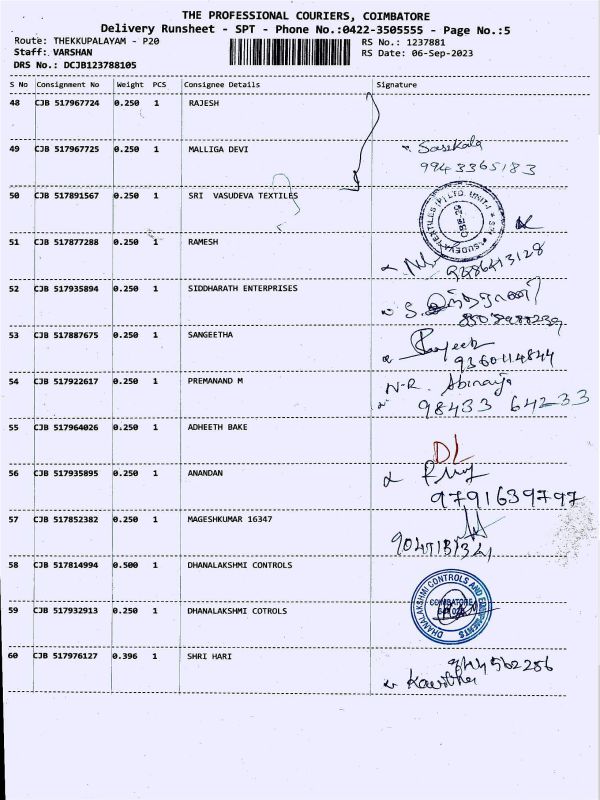 THE PROFESSIONAL COURIERS, COIMBATORE
Delivery Runsheet - SPT - Phone No.:0422-3505555 - Page No.:5
Route: THEKKUPALAYAM - P20 RS No.: 1237881
Staff: VARSHAN RS Date: 06-Sep-2023
DRS No.: DCJB123788105
S No Consignment No Weight PCS Consignee Details Signature
48 CJB 517967724 0.250 1 RAJESH
49 CJB 517967725 0.250 1 MALLIGA DEVI Sasekala
9943365183
50 CJB 517891567 0.250 1 SRI VASUDEVA TEXTILES
51 CJB 517877288 0.250 1 RAMESH
52 CJB 517935894 0.250 1 SIDDHARATH ENTERPRISES
53 CJB 517887675 0.250 1 SANGEETHA
54 CJB 517922617 0.250 1 PREMANAND M N-R. Abinaya
98433 64233
55 CJB 517964026 0.250 1 ADHEETH BAKE DL
56 CJB 517935895 0.250 1 ANANDAN
9791639797
57 CJB 517852382 0.250 1 MAGESHKUMAR 16347
58 CJB 517814994 0.500 1 DHANALAKSHMI CONTROLS
DHANALAKSHMI CONTROLS AND EQUIPMENTS
COIMBATORE
59 CJB 517932913 0.250 1 DHANALAKSHMI COTROLS
60 CJB 517976127 0.396 1 SHRI HARI